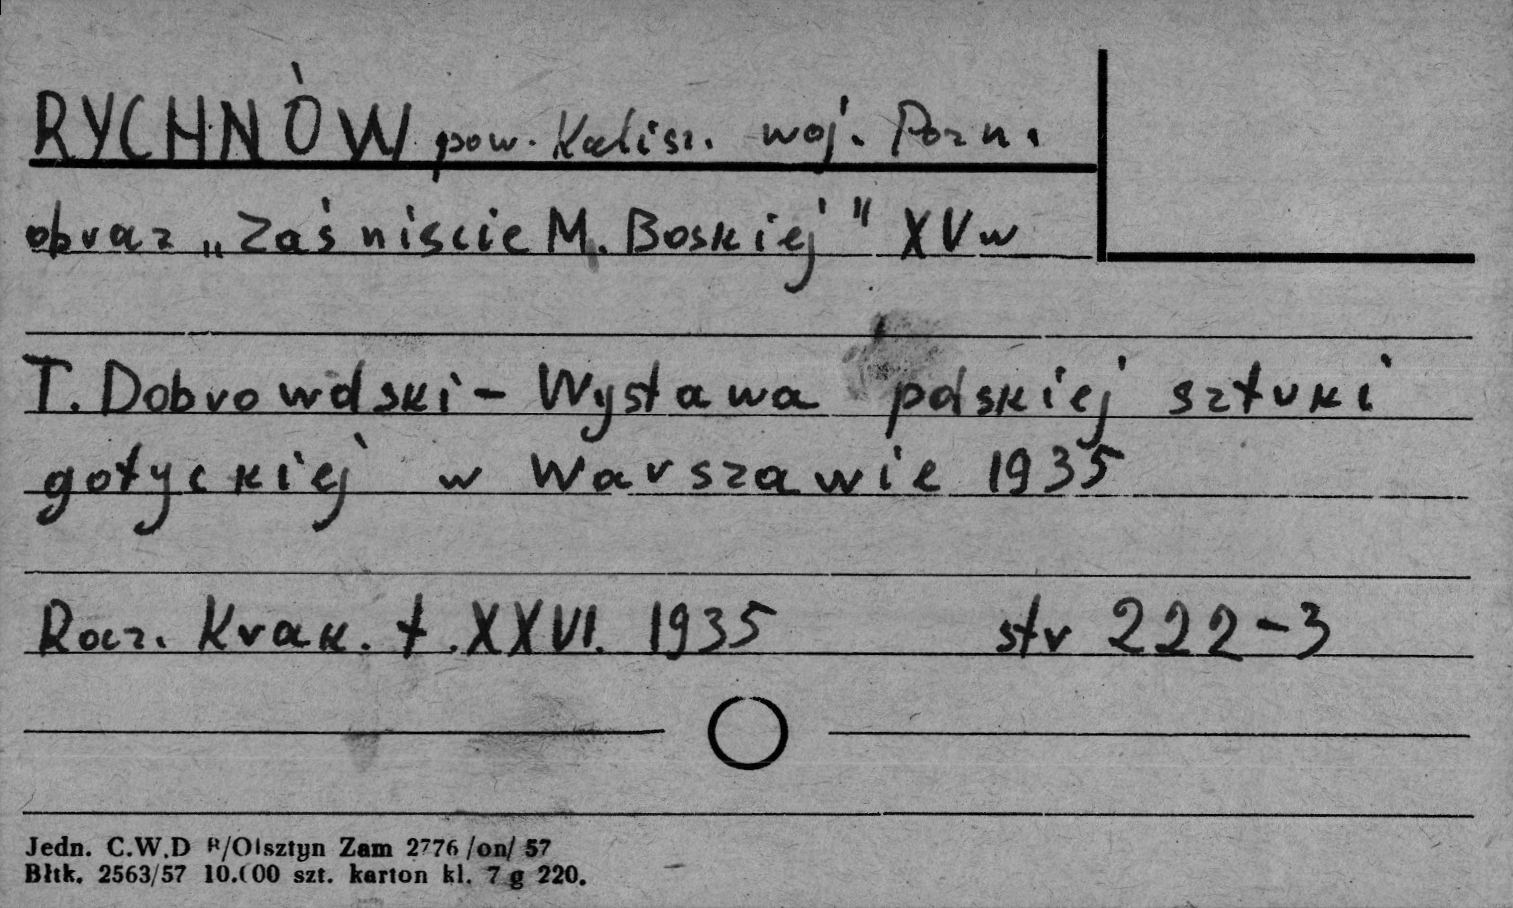 RYCHNÓW pow. Kalisz. woj. Pozn.
obraz „Zaśniscie M. Boskiej" XV w
T. Dobrowolski - Wystawa polskiej sztuki
gotyckiej w Warszawie 1935
Rocz. Krak. t. XXVI. 1935 str 222-3
Jedn. C.W.D R/Olsztyn Zam 2776 /on/ 57
Błtk. 2563/57 10.000 szt. karton kl. 7 g 220.